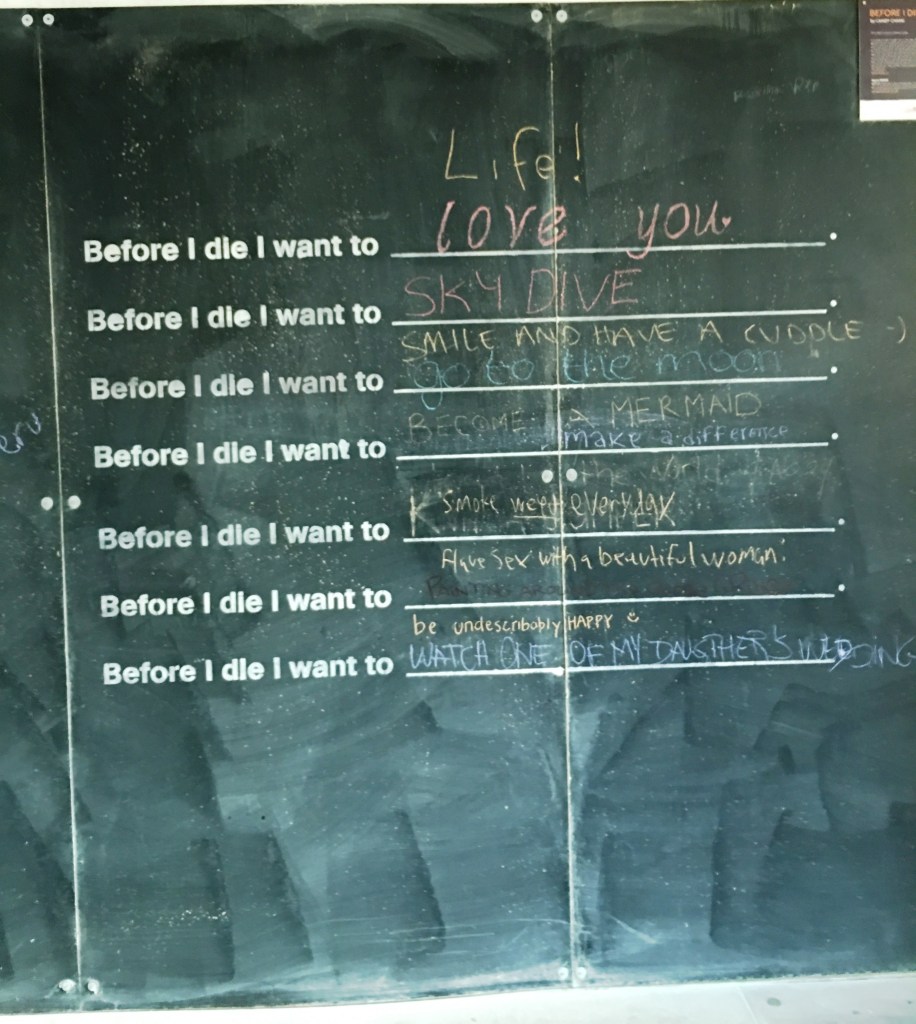 BEFORE I DI
Life!
Before I die I want to love you.
Before I die I want to SKY DIVE.
SMILE AND HAVE A CUDDLE :-)
Before I die I want to go to the moon.
BECOME A MERMAID
Before I die I want to make a difference.
the world
Before I die I want to K smoke weed everyday.
Have Sex with a beautiful woman.
Before I die I want to PAINTING.
be undescribably HAPPY
Before I die I want to WATCH ONE OF MY DAUGHTER'S WEDDING